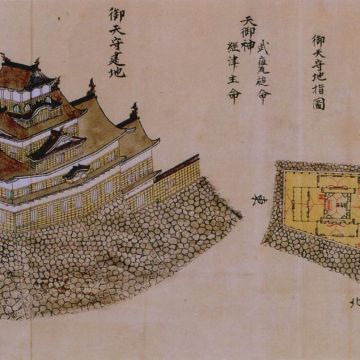 御天守地指圖
天御神
武甕槌命
經津主命
御天守建地
東
北